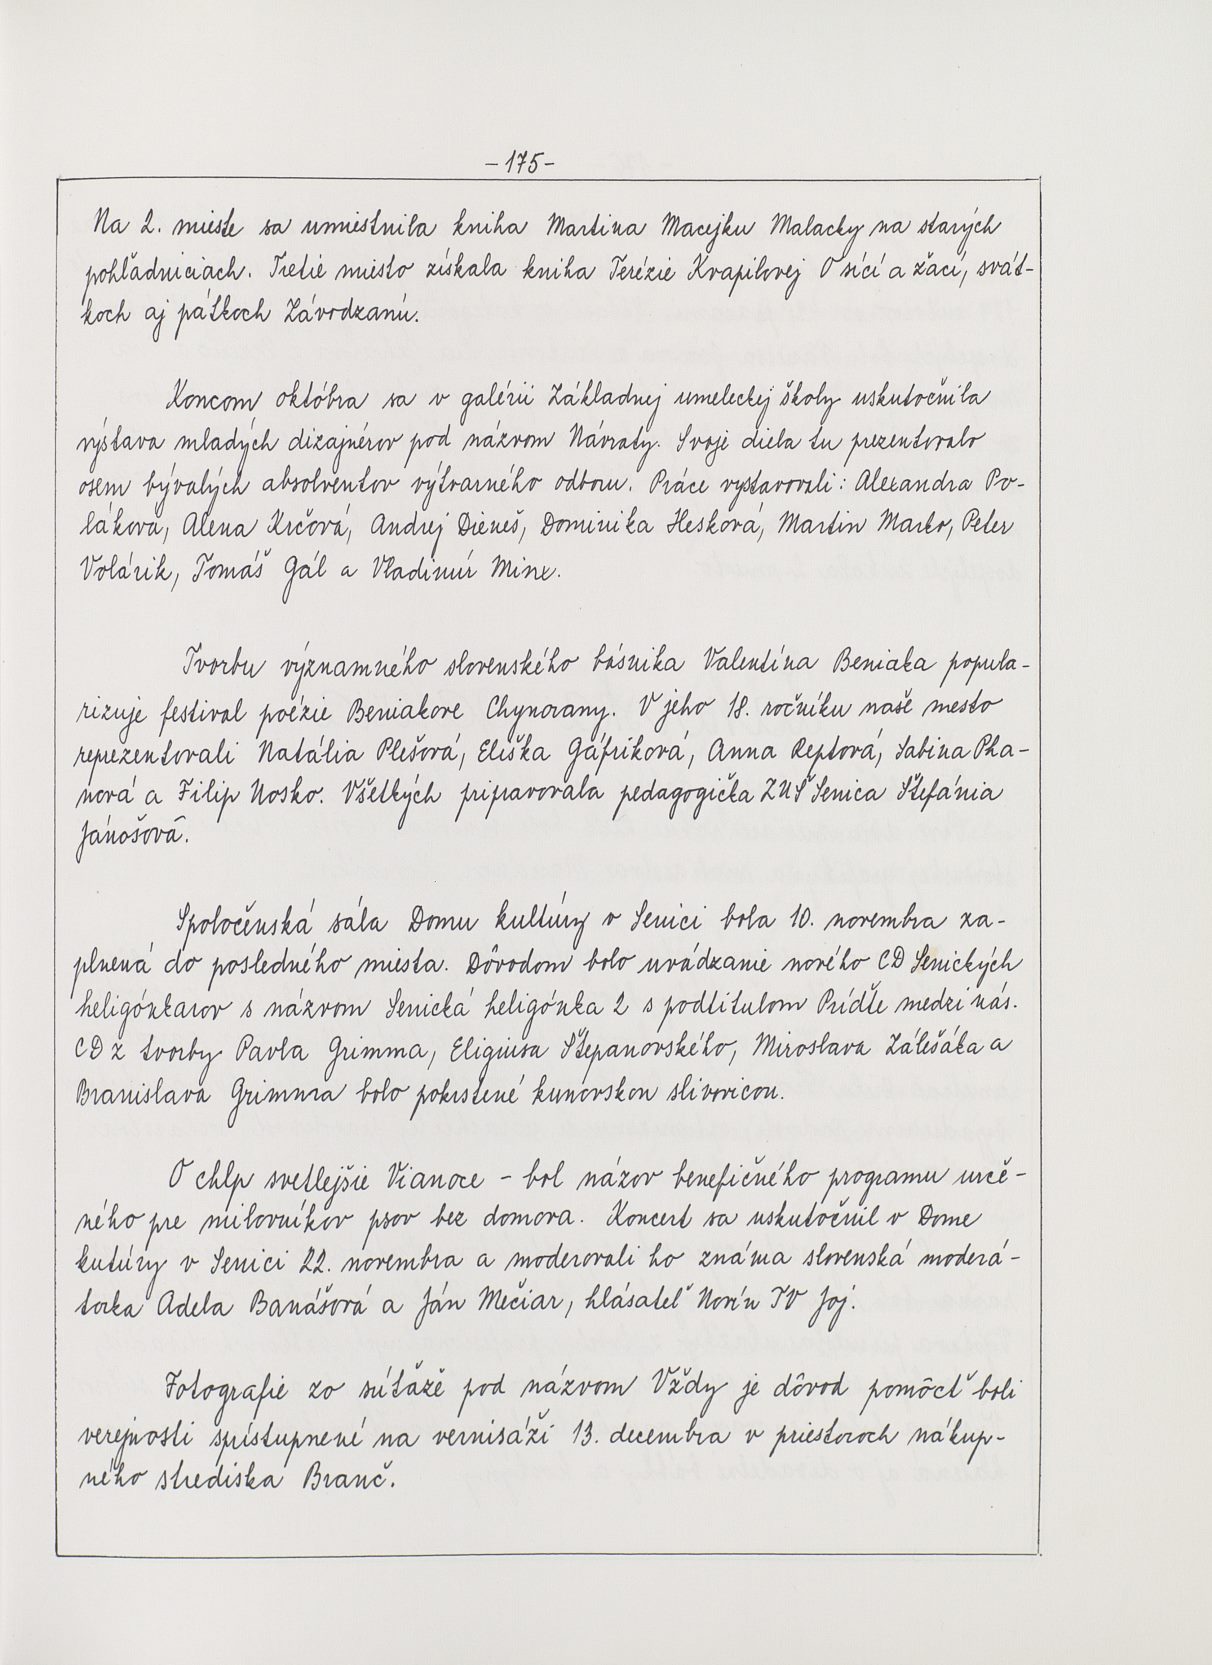 -175-
Na 2. mieste sa umiestnila kniha Martina Macejku Malacky na starých
pohľadniciach. Tretie miesto získala kniha Terézie Kvapilovej O síci a žací, svát-
koch aj pátkoch Závodzanú.
Koncom októbra sa v galérii Základnej umeleckej školy uskutočnila
výstava mladých dizajnérov pod názvom Návraty. Svoje diela tu prezentovalo
osem bývalých absolventov výtvarného odboru. Práce vystavovali: Alexandra Po-
láková, Alena Krčová, Andrej Dieneš, Dominika Hesková, Martin Marko, Peter
Volárik, Tomáš Gál a Vladimír Minx.
Tvorbu významného slovenského básnika Valentína Beniaka popula-
rizuje festival poézie Beniakove Chynorany. V jeho 18. ročníku naše mesto
reprezentovali Natália Plešová, Eliška Gáfriková, Anna Reptová, Sabína Pka-
nová a Filip Nosko. Všetkých pripravovala pedagogička ZUŠ Senica Štefánia
Jánošová.
Spoločenská sála Domu kultúry v Senici bola 10. novembra za-
plnená do posledného miesta. Dôvodom bolo uvádzanie nového CD Senických
heligónkarov s názvom Senická heligónka 2 s podtitulom Príďte medzi nás.
CD z tvorby Pavla Grimma, Eligiusa Štepanovského, Miroslava Zálešáka a
Branislava Grimma bolo pokrstené kunovskou slivovicou.
O chlp svetlejšie Vianoce - bol názov benefičného programu urče-
ného pre milovníkov psov bez domova. Koncert sa uskutočnil v Dome
kutúry v Senici 22. novembra a moderovali ho známa slovenská moderá-
torka Adela Banášová a Ján Mečiar, hlásateľ Novín TV Joj.
Fotografie zo súťaže pod názvom Vždy je dôvod pomôcť boli
verejnosti sprístupnené na vernisáži 13. decembra v priestoroch nákup-
ného strediska Branč.